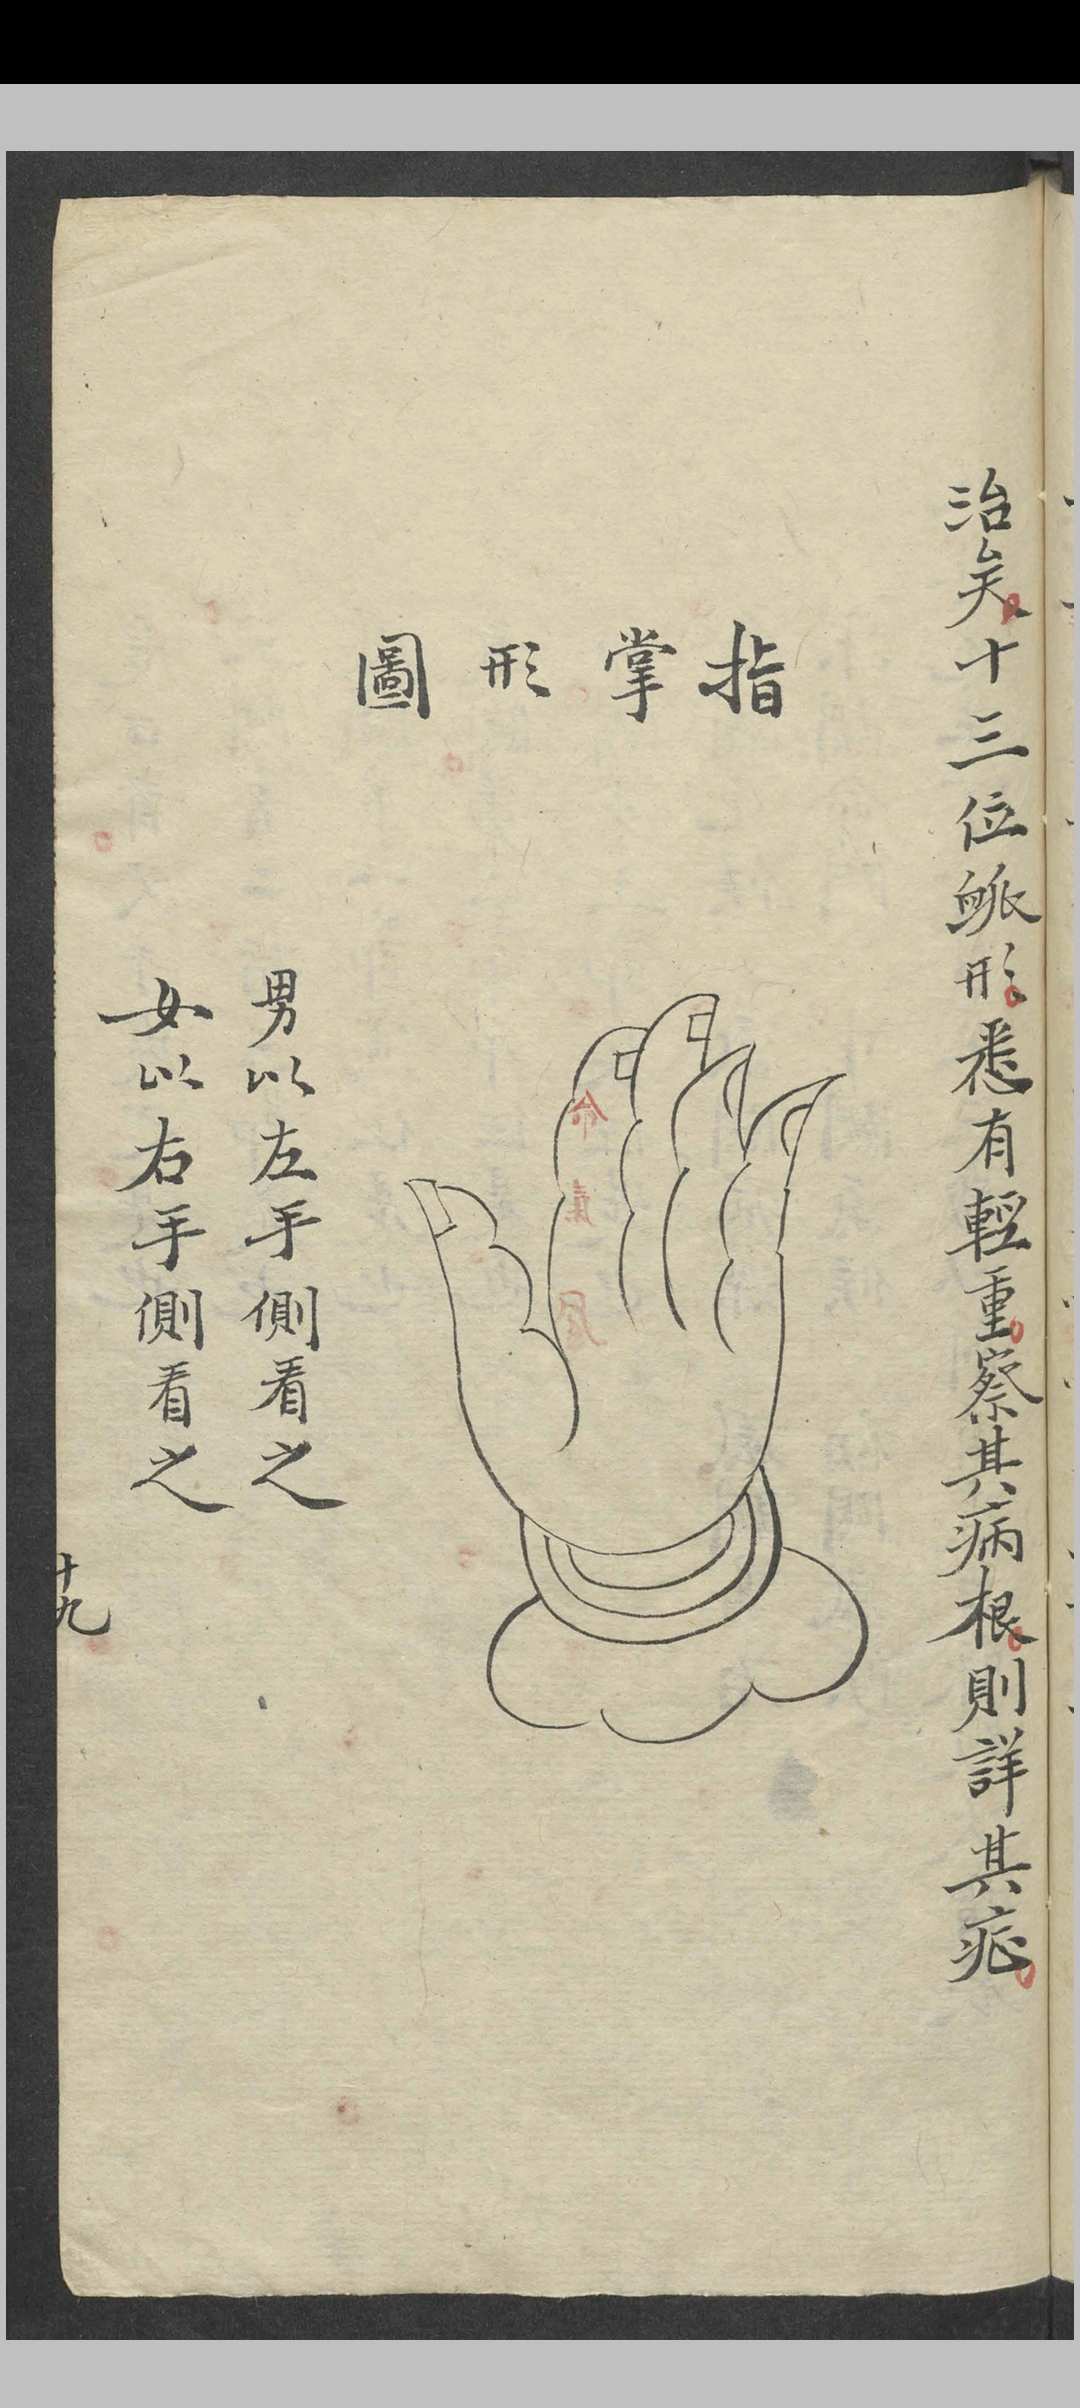 治矣十三位衇形悉有輕重察其病根則詳其症
指掌形圖
命
風
男以左手側看之
女以右手側看之
十九